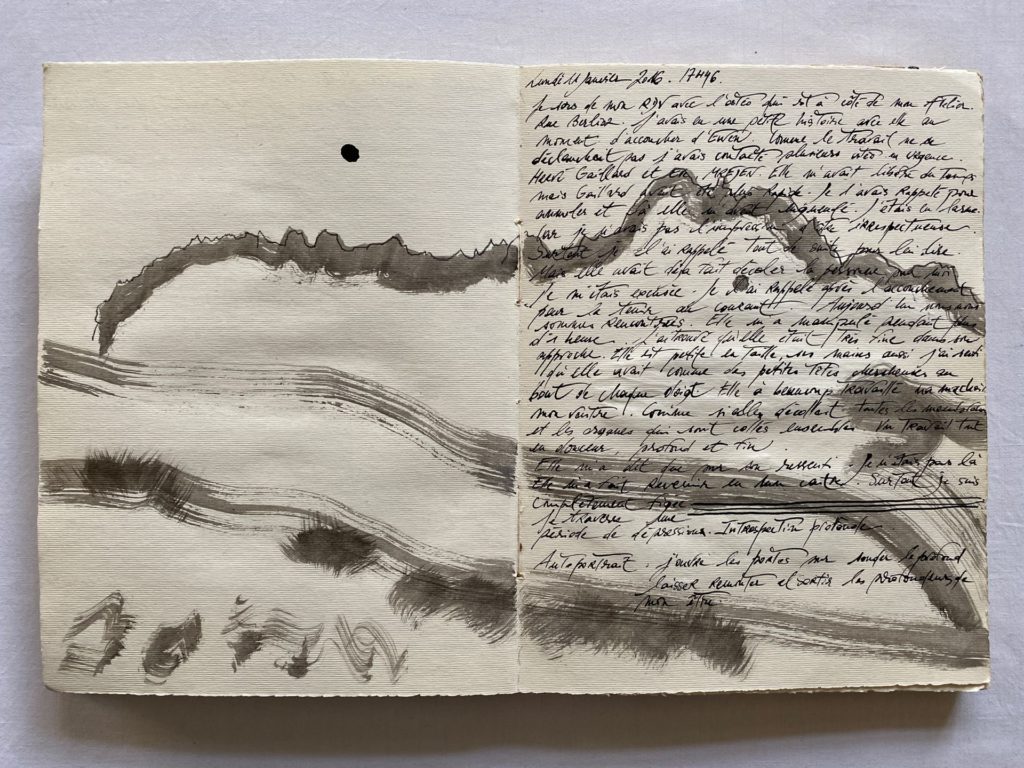 Lundi 11 Janvier 2016. 17H46.
Je sors de mon RDV avec l'ostéo qui est à côté de mon Atelier.
Rue Berlioz. J'avais eu une petite histoire avec elle au
moment d'accoucher d'Ewen. Comme le travail ne se
déclenchait pas j'avais contacté plusieurs ostéo en urgence.
Hervé Gaillard et Elle m'avait libéré du temps
mais Gaillard avait été plus rapide. Je l'avais rappelé pour
annuler et là elle m'avait J'étais en larme
car je n'avais pas l'impression d'être irrespectueuse.
Surtout je l'ai rappelé tout de suite pour lui dire.
Mais elle avait déjà fait décaler la personne
Je m'étais excusée. Je l'ai rappelé après l'accouchement
pour la tenir au courant. Aujourd'hui nous nous
sommes rencontrées. Elle m'a manipulé pendant plus
d'1 heure. qu'elle était très fine dans son
approche. Elle est petite en taille, ses mains aussi j'ai senti
qu'elle avait comme des petites têtes chercheuses au
bout de chaque doigt. Elle a beaucoup travaillé ma machoire
mon ventre. Comme si elle décollait toutes les
et les organes qui sont collés ensembles. Un travail tout
en douceur, profond et fin.
Elle m'a dit que sur son ressenti. Je n'étais pas là
Elle m'a fait revenir en mon Surtout je suis
complètement figée
Je traverse une
période de dépression. Introspection profonde
Autoportrait. J'ouvre les portes sur sonder le profond
laisser remonter et sortir les profondeurs de
mon être.